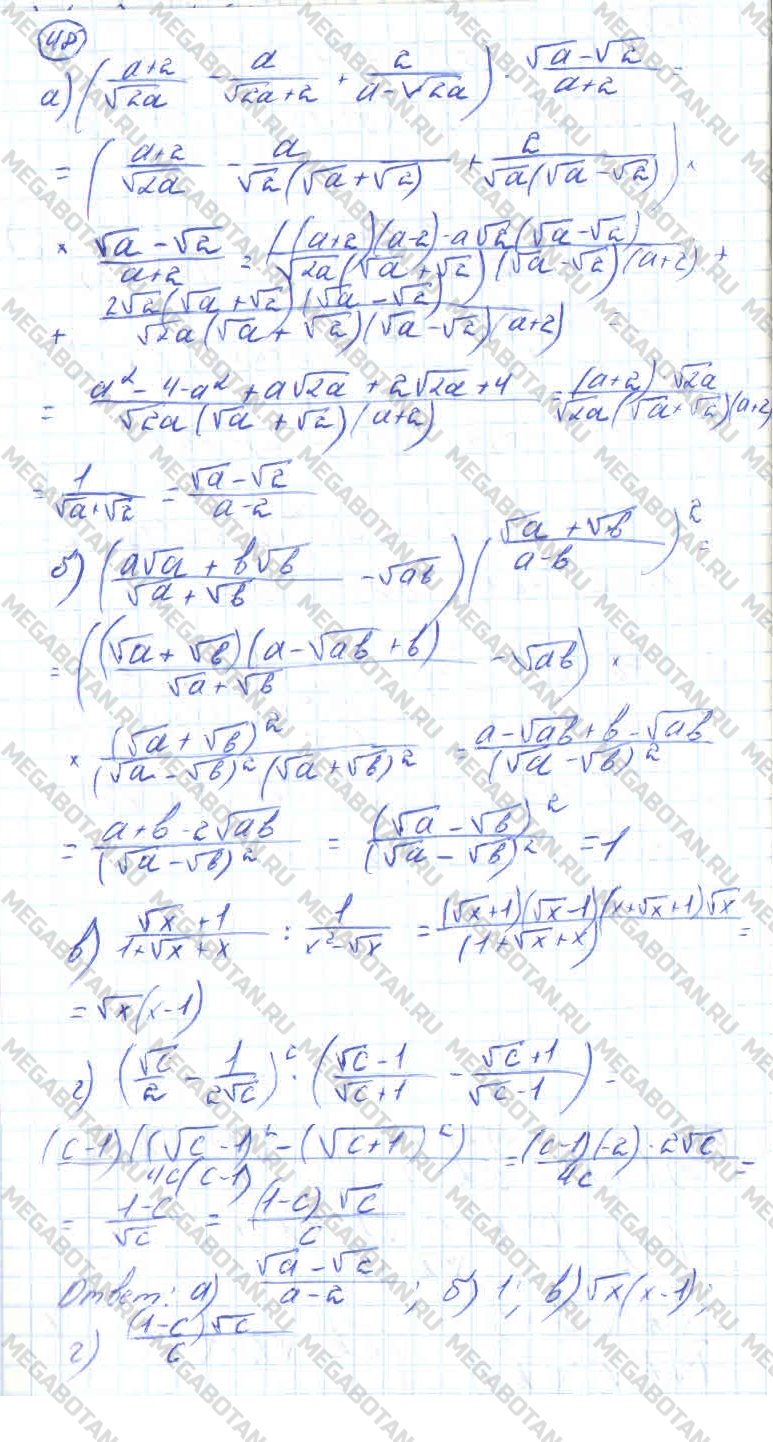 48
а) ( (a+2)/√2a - a/(√2a+2) + 2/(a-√2a) ) · (√a-√2)/(a+2) =
= ( (a+2)/√2a - a/(√2(√a+√2)) + 2/(√a(√a-√2)) ) ·
× (√a-√2)/(a+2) = ((a+2)(a-2)-a√2(√a-√2))/(√2a(√a+√2)(√a-√2)(a+2)) +
+ (2√2(√a+√2)(√a-√2))/(√2a(√a+√2)(√a-√2)(a+2)) =
= (a²-4-a²+a√2a+2√2a+4)/(√2a(√a+√2)(a+2)) = ((a+2)·√2a)/(√2a(√a+√2)(a+2))
= 1/(√a+√2) = (√a-√2)/(a-2)
б) ( (a√a+b√b)/(√a+√b) - √ab ) ( (√a+√b)/(a-b) )² =
= ( ((√a+√b)(a-√ab+b))/(√a+√b) - √ab ) ×
× (√a+√b)²/((√a-√b)²(√a+√b)²) = (a-√ab+b-√ab)/(√a-√b)²
= (a+b-2√ab)/(√a-√b)² = (√a-√b)²/(√a-√b)² = 1
в) (√x+1)/(1+√x+x) : 1/(x²-√x) = ((√x+1)(√x-1)(x+√x+1)√x)/(1+√x+x) =
= √x(x-1)
г) ( √c/2 - 1/(2√c) )² · ( (√c-1)/(√c+1) - (√c+1)/(√c-1) ) =
(c-1)((√c-1)²-(√c+1)²)/(4c(c-1)) = ((c-1)(-2)·2√c)/4c =
= (1-c)/√c = ((1-c)√c)/c
Ответ: а) (√a-√2)/(a-2); б) 1; в) √x(x-1);
г) ((1-c)√c)/c
MEGABOTAN.RU